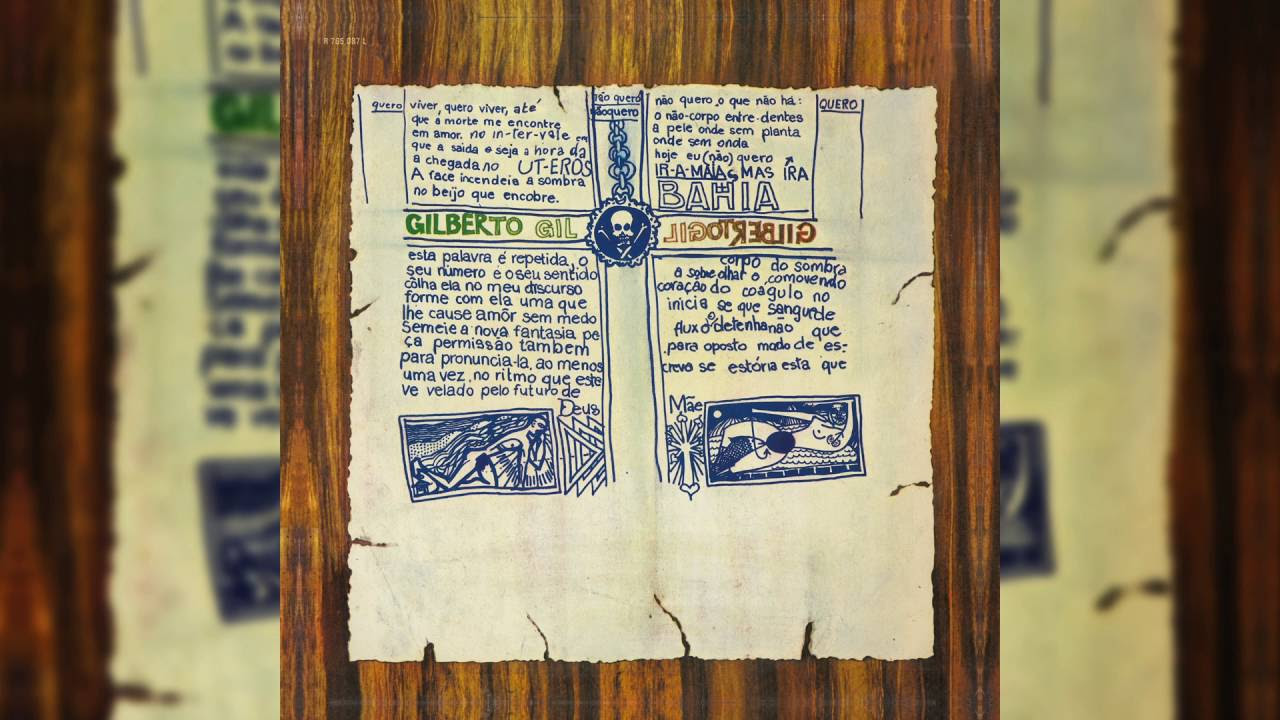 R 765.087 L
quero
viver, quero viver, até
que a morte me encontre
em amor. no in-ter-vale em
que a saida e seja a hora da
a chegada no UT-EROS
A face incendeia a sombra
no beijo que encobre.
não quero
nãoquero
não quero o que não há:
o não-corpo entre-dentes
a pele onde sem planta
onde sem onda
hoje eu (não) quero
IR-A-MAIAS MAS IRA
BAHIA
QUERO
GILBERTO GIL
GILBERTO GIL
esta palavra é repetida, o
seu número é o seu sentido
côlha ela no meu discurso
forme com ela uma que
lhe cause amôr sem medo
Semeie a nova fantasia pe
ça permissão tambem
para pronuncia-la, ao menos
uma vez, no ritmo que este
ve velado pelo futuro de
Deus
corpo do sombra
a sobre olhar o comovendo
coração do coágulo no
inicia se que sangue de
fluxo detenha não que
para oposto modo de es-
creva se estória esta que
Mãe